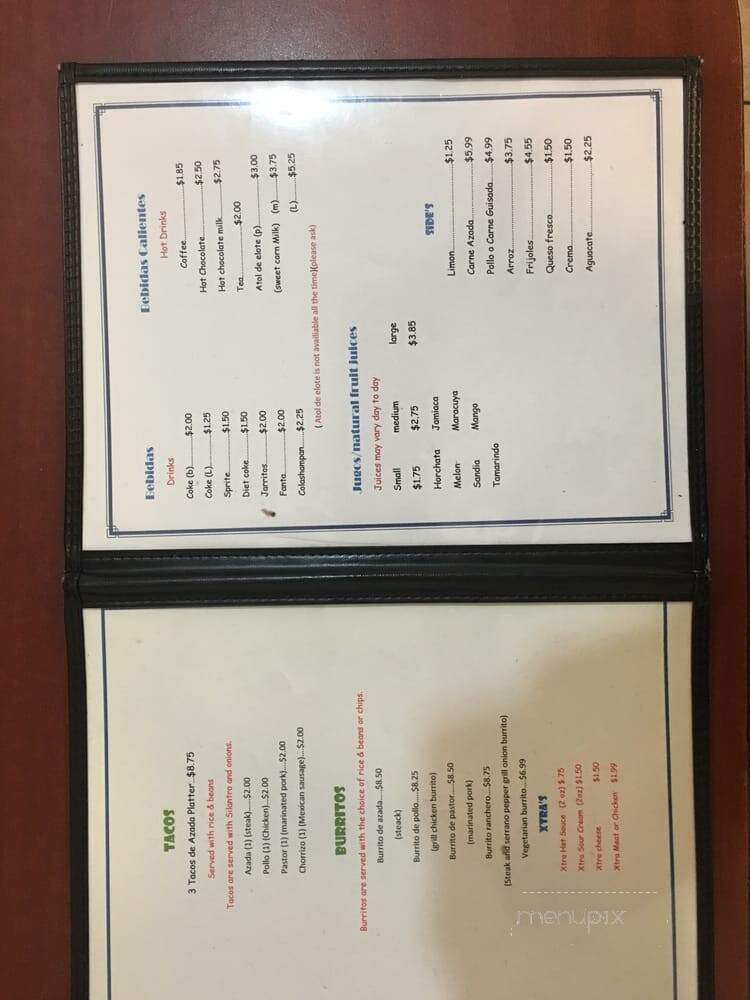 TACOS
3 Tacos de Azada Platter ..$8.75
Served with rice & beans
Tacos are served with Silantro and onions.
Azada (1) (steak).....$2.00
Pollo (1) (Chicken)...$2.00
Pastor (1) (marinated pork)....$2.00
Chorrizo (1) (Mexican sausage)...$2.00
BURRITOS
Burritos are served with the choice of rice & beans or chips.
Burrito de azada.....$8.50
(steack)
Burrito de pollo.....$8.25
(grill chicken burrito)
Burrito de pastor.....$8.50
(marinated pork)
Burrito ranchero....$8.75
(Steak and serrano pepper grill onion burrito)
Vegetarian burrito....$6.99
XTRA'S
Xtra Hot Sauce (2 oz) $.75
Xtra Sour Cream (2oz) $1.50
Xtra cheese $1.50
Xtra Meat or Chicken $1.99
Bebidas
Drinks
Coke (b)..........$2.00
Coke (L)..........$1.25
Sprite..........$1.50
Diet coke..........$1.50
Jarritos..........$2.00
Fanta..........$2.00
Colashampan......$2.25
Bebidas Calientes
Hot Drinks
Coffee..........$1.85
Hot Chocolate..........$2.50
Hot chocolate milk..........$2.75
Tea..........$2.00
Atol de elote (p)..........$3.00
(sweet corn Milk) (m)......$3.75
(L)..........$5.25
( Atol de elote is not availiable all the time)(please ask)
Jugos/natural fruit juices
Juices may vary day to day
Small medium large
$1.75 $2.75 $3.85
Horchata Jamiaca
Melon Maracuya
Sandia Mango
Tamarindo
SIDE'S
Limon..........$1.25
Carne Azada..........$5.99
Pollo o Carne Guisada.....$4.99
Arroz..........$3.75
Frijoles..........$4.55
Queso fresco..........$1.50
Crema..........$1.50
Aguacate..........$2.25
menupix